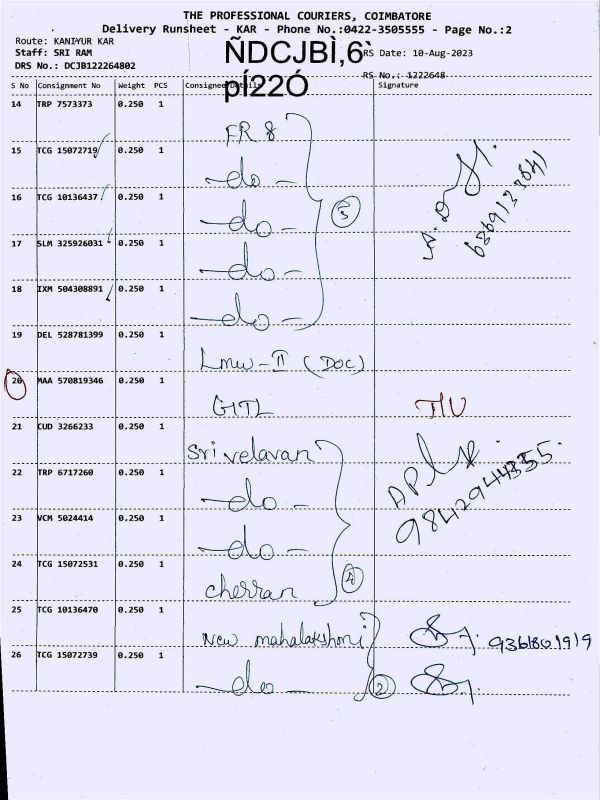 THE PROFESSIONAL COURIERS, COIMBATORE
Delivery Runsheet - KAR - Phone No.:0422-3505555 - Page No.:2
Route: KANIYUR KAR
Staff: SRI RAM
DRS No.: DCJB122264802
ÑDCJBÌ,6`
pÍ22Ó
RS Date: 10-Aug-2023
RS No.: 1222648
S No Consignment No Weight PCS Consignee Details Signature
14 TRP 7573373 0.250 1 FR 8
15 TCG 15072719 0.250 1 -do-
16 TCG 10136437 0.250 1 -do-
17 SLM 325926031 0.250 1 -do-
18 IXM 504308891 0.250 1 -do-
5
19 DEL 528781399 0.250 1 Lmw-II (DOC)
20 MAA 570819346 0.250 1 GITL
21 CUD 3266233 0.250 1 Sri velavan
22 TRP 6717260 0.250 1 -do-
23 VCM 5024414 0.250 1 -do-
24 TCG 15072531 0.250 1 cherran
4
9842944355.
25 TCG 10136470 0.250 1 New mahalakshmi 9361801919
26 TCG 15072739 0.250 1 -do- 2